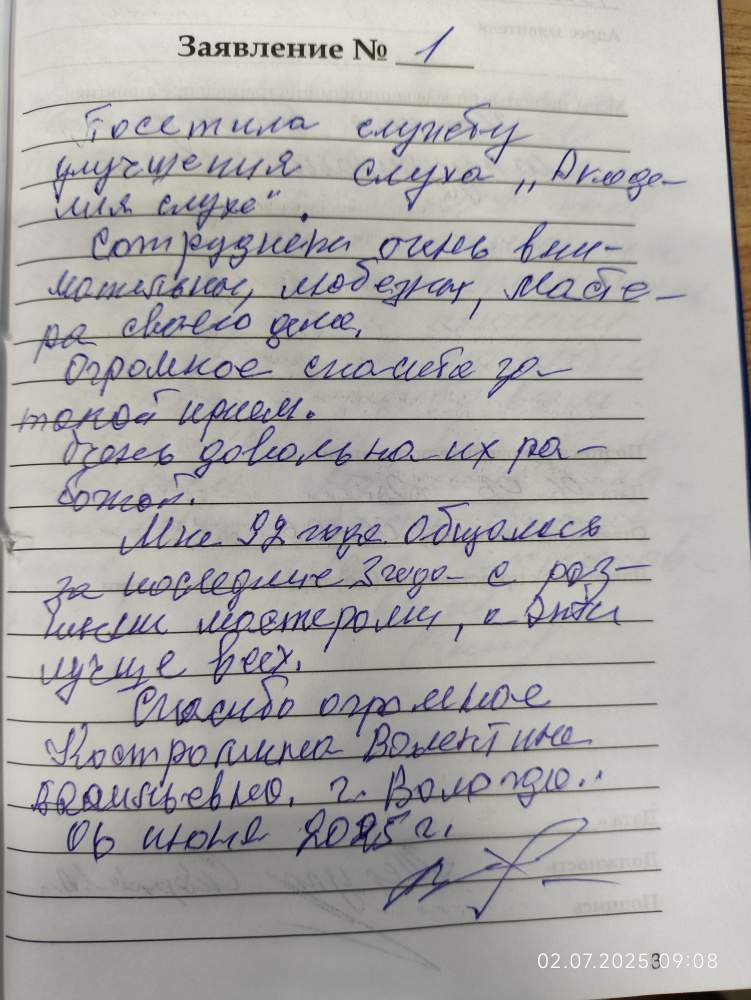 Заявление № 1
Посетила службу
улучшения слуха „Акаде-
мия слуха".
Сотрудники очень вни-
мательны, любезны, масте-
ра своего дела.
Огромное спасибо за
такой прием.
Очень довольна их ра-
ботой.
Мне 92 года. Общалась
за последние 3 года с раз-
ными мастерами, а эти
лучше всех.
Спасибо огромное
Костромина Валентина
Васильевна. г. Вологда.
06 июня 2025 г.
3
02.07.2025 09:08